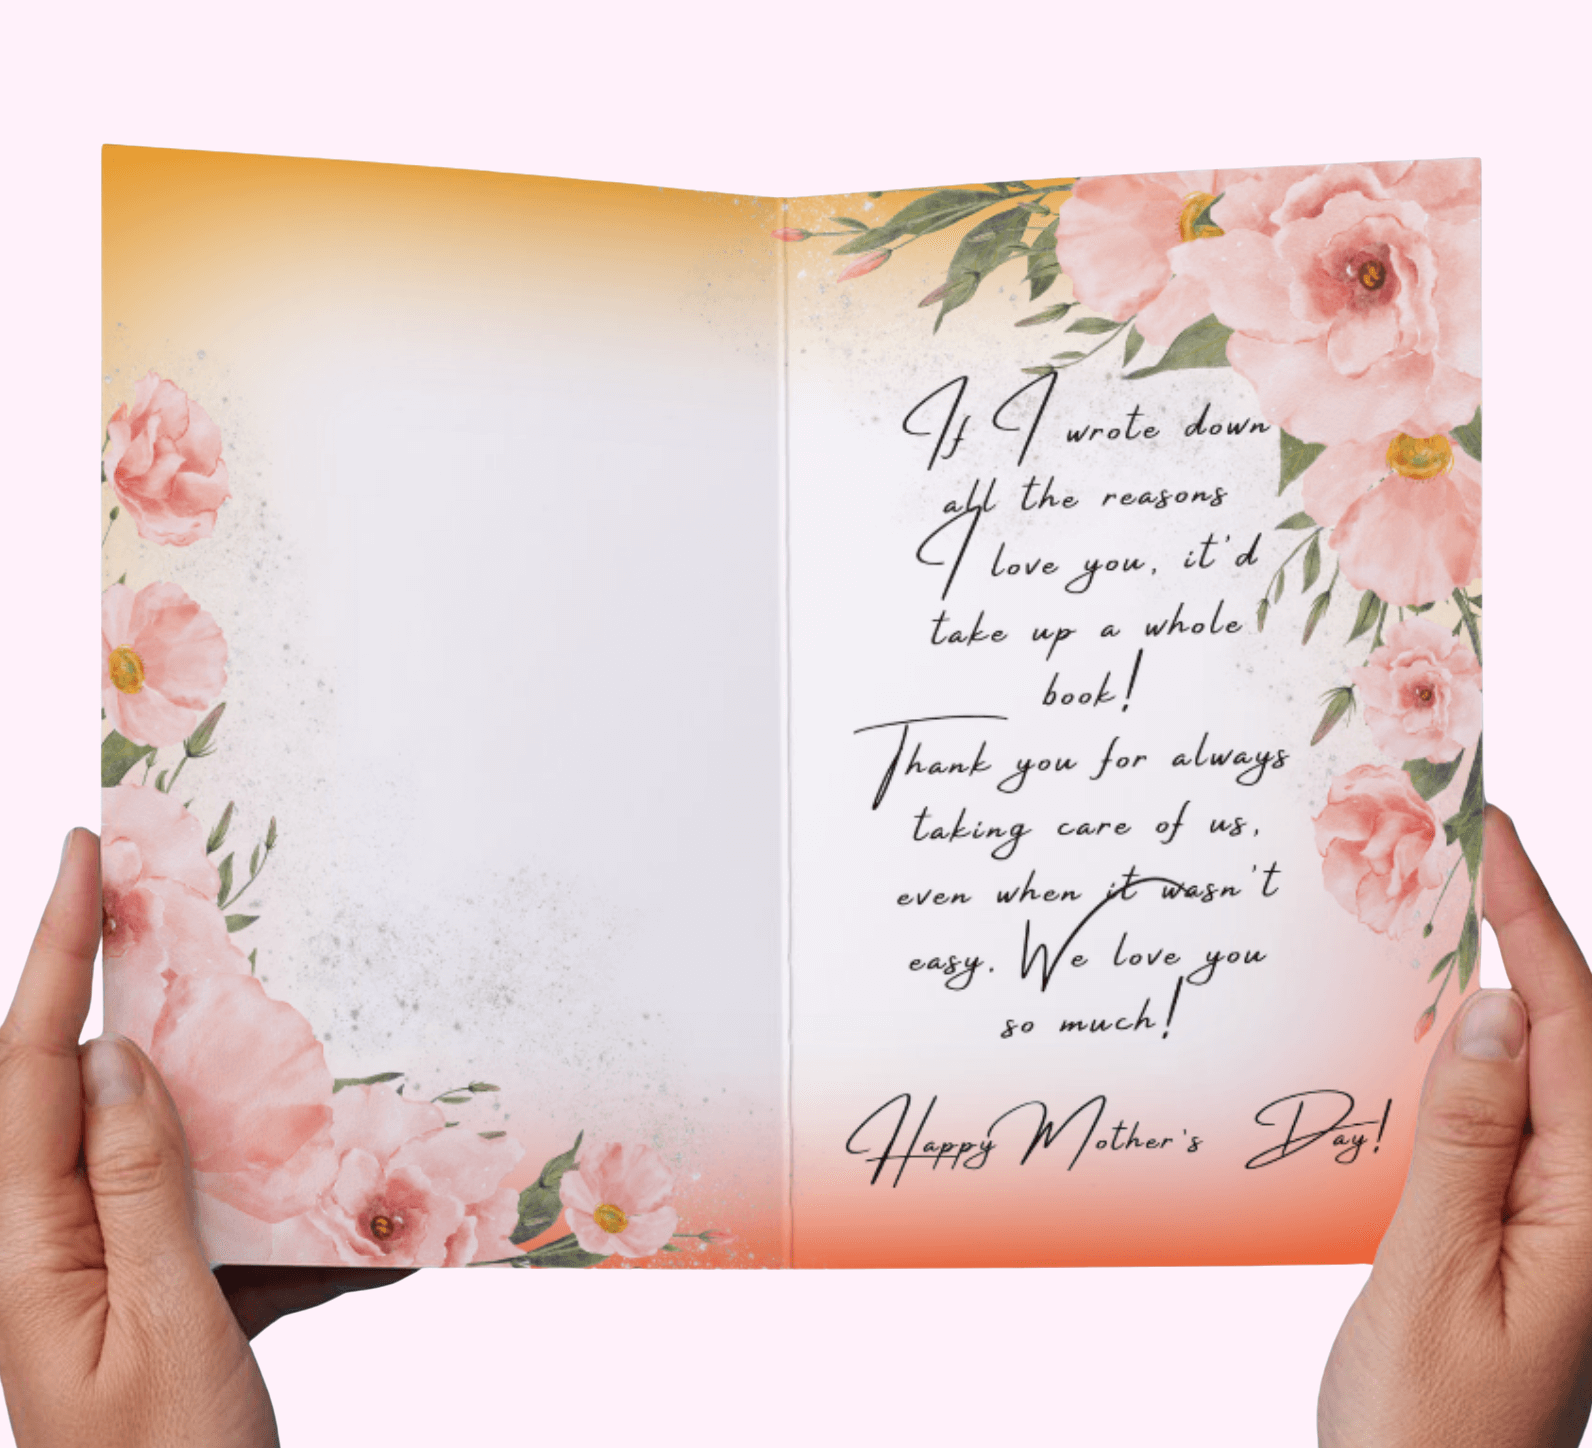 If I wrote down
all the reasons
I love you, it'd
take up a whole
book!
Thank you for always
taking care of us,
even when it wasn't
easy. We love you
so much!
Happy Mother's Day!